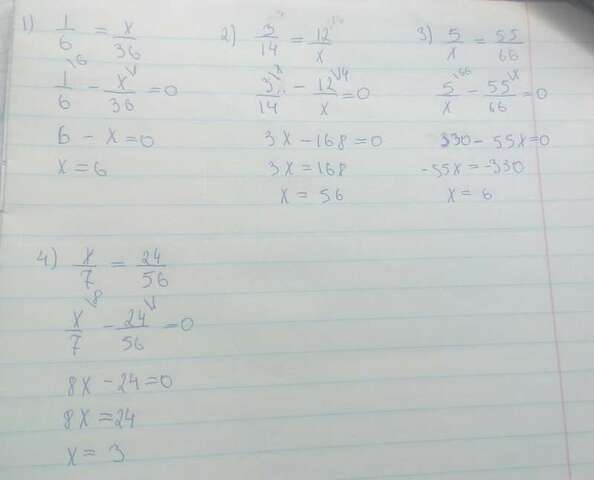 1) 1/6 = x/36
1\6/6 - x\1/36 = 0
6 - x = 0
x = 6
2) 3/14 = 12/x
3\x/14 - 12\14/x = 0
3x - 168 = 0
3x = 168
x = 56
3) 5/x = 55/66
5\66/x - 55\x/66 = 0
330 - 55x = 0
-55x = -330
x = 6
4) x/7 = 24/56
x\8/7 - 24\1/56 = 0
8x - 24 = 0
8x = 24
x = 3